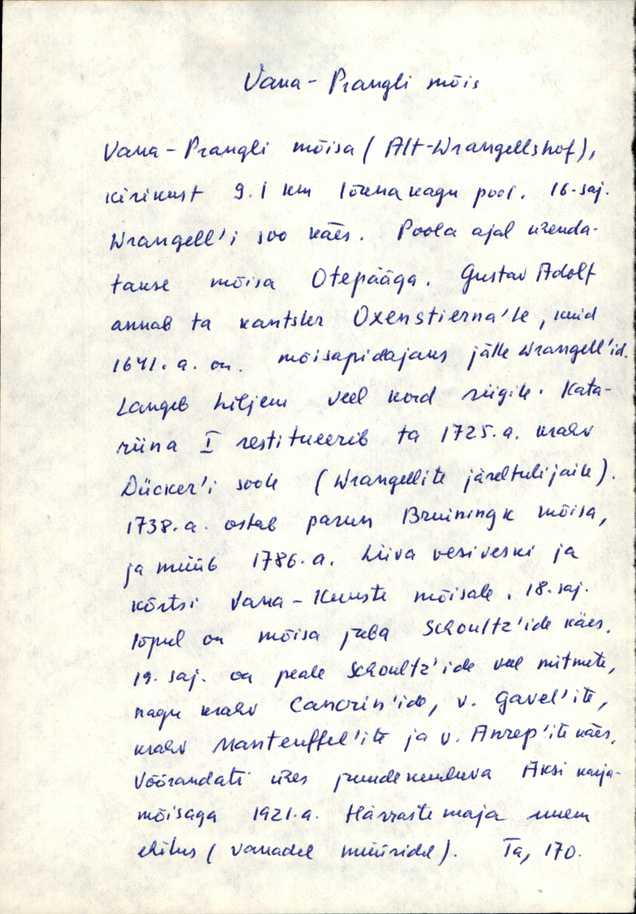 Vana-Prangli mõis
Vana-Prangli mõisa (Alt-Wrangellshof),
kirikust 9.1 km lõunakagu pool. 16-saj.
Wrangell'i soo käes. Poola ajal ühenda-
takse mõisa Otepääga. Gustav Adolf
annab ta kantsler Oxenstierna'le, kuid
1641. a. on mõisapidajaks jälle Wrangell'id.
Langeb hiljem veel kord riigile. Kata-
riina I restitueerib ta 1725. a. krahv
Dücker'i soole (Wrangellite järeltulijaile).
1738. a. ostab parun Bruiningk mõisa,
ja müüb 1786. a. Liiva vesiveski ja
kõrtsi Vana-Kuuste mõisale. 18. saj.
lõpul on mõisa juba Schoultz'ide käes.
19. saj. on peale Schoultz'ide veel mitmete,
nagu krahv Cancrin'ide, v. Gavel'ite,
krahv Manteuffel'ite ja v. Anrep'ite käes.
Võõrandati ühes juurdekuuluva Äksi karja-
mõisaga 1921. a. Härrastemaja uuem
ehitus (vanadel müüridel). Ta, 170.